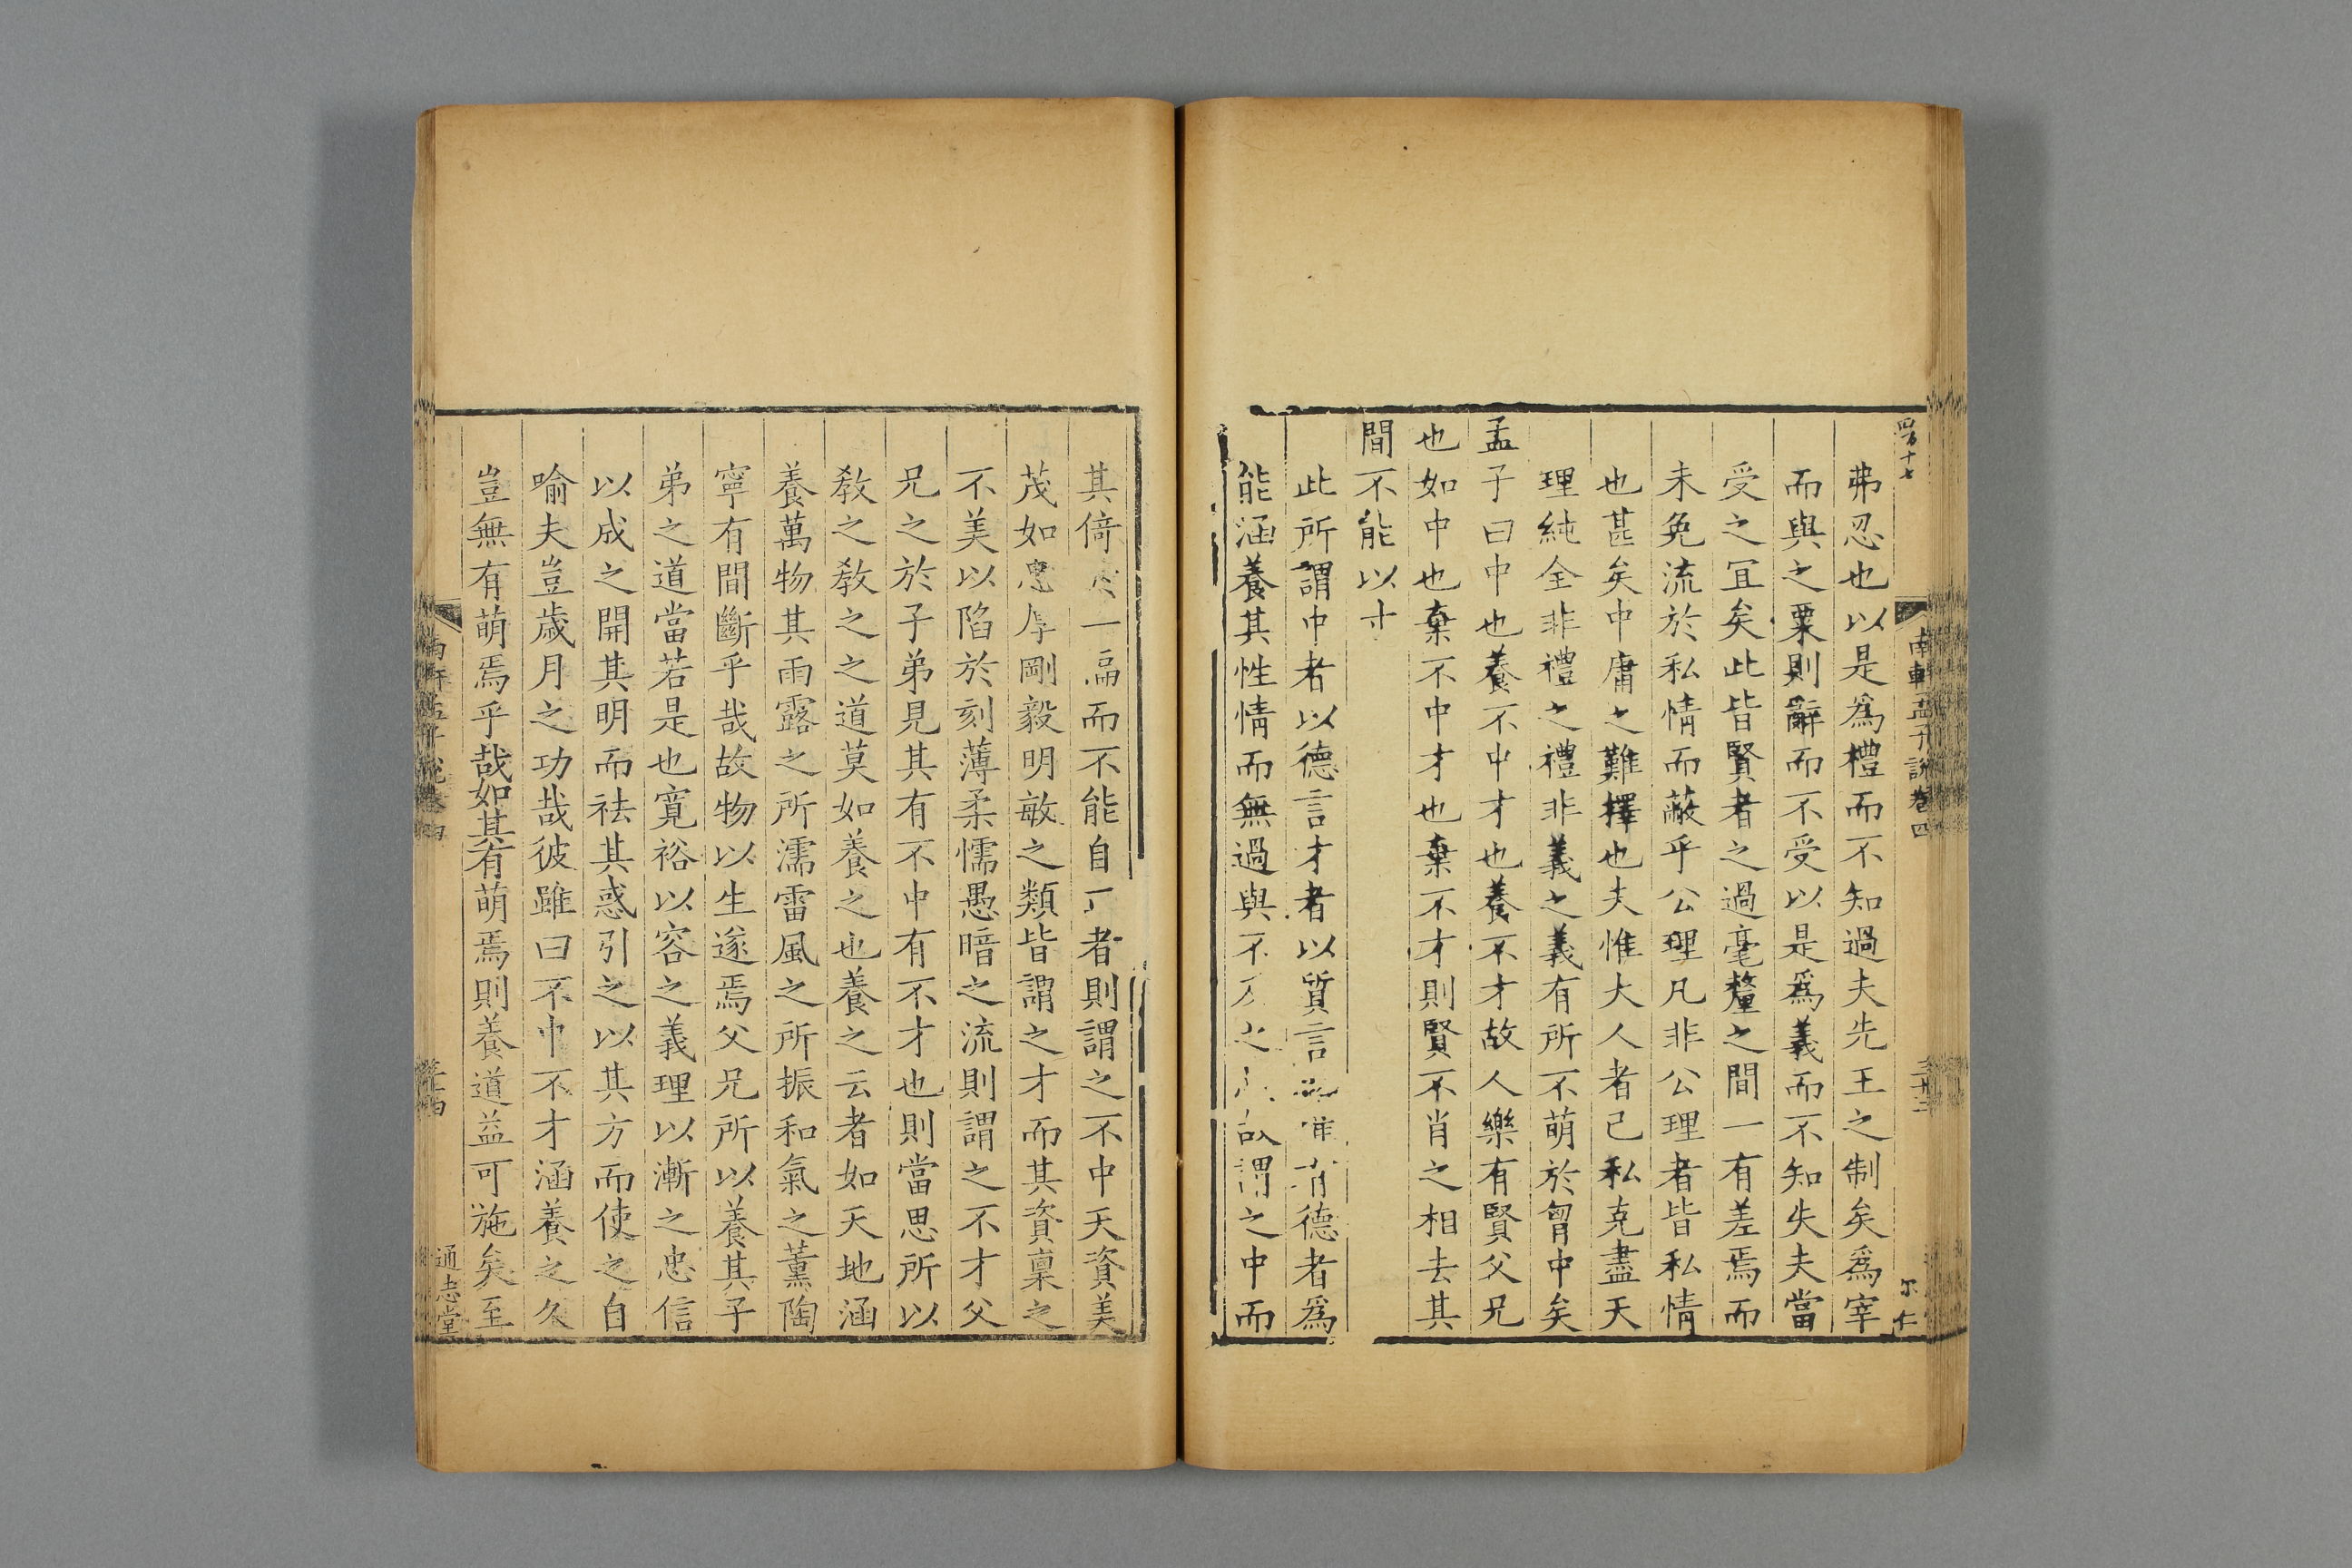 南軒孟子說卷四
弗忍也以是爲禮而不知過夫先王之制矣爲宰
而與之粟則辭而不受以是爲義而不知失夫當
受之宜矣此皆賢者之過毫釐之間一有差焉而
未免流於私情而蔽乎公理凡非公理者皆私情
也甚矣中庸之難擇也夫惟大人者己私克盡天
理純全非禮之禮非義之義有所不萌於胷中矣
孟子曰中也養不中才也養不才故人樂有賢父兄
也如中也棄不中才也棄不才則賢不肖之相去其
間不能以寸
此所謂中者以德言才者以質言惟有德者爲
能涵養其性情而無過與不及之故謂之中而
其倚一偏而不能自者則謂之不中天資美
茂如忠厚剛毅明敏之類皆謂之才而其資稟之
不美以陷於刻薄柔懦愚暗之流則謂之不才父
兄之於子弟見其有不中有不才也則當思所以
教之教之之道莫如養之也養之云者如天地涵
養萬物其雨露之所濡雷風之所振和氣之薰陶
寧有間斷乎哉故物以生遂焉父兄所以養其子
弟之道當若是也寬裕以容之義理以漸之忠信
以成之開其明而祛其惑引之以其方而使之自
喻夫豈歲月之功哉彼雖曰不中不才涵養之久
豈無有萌焉乎哉如其有萌焉則養道益可施矣至
通志堂